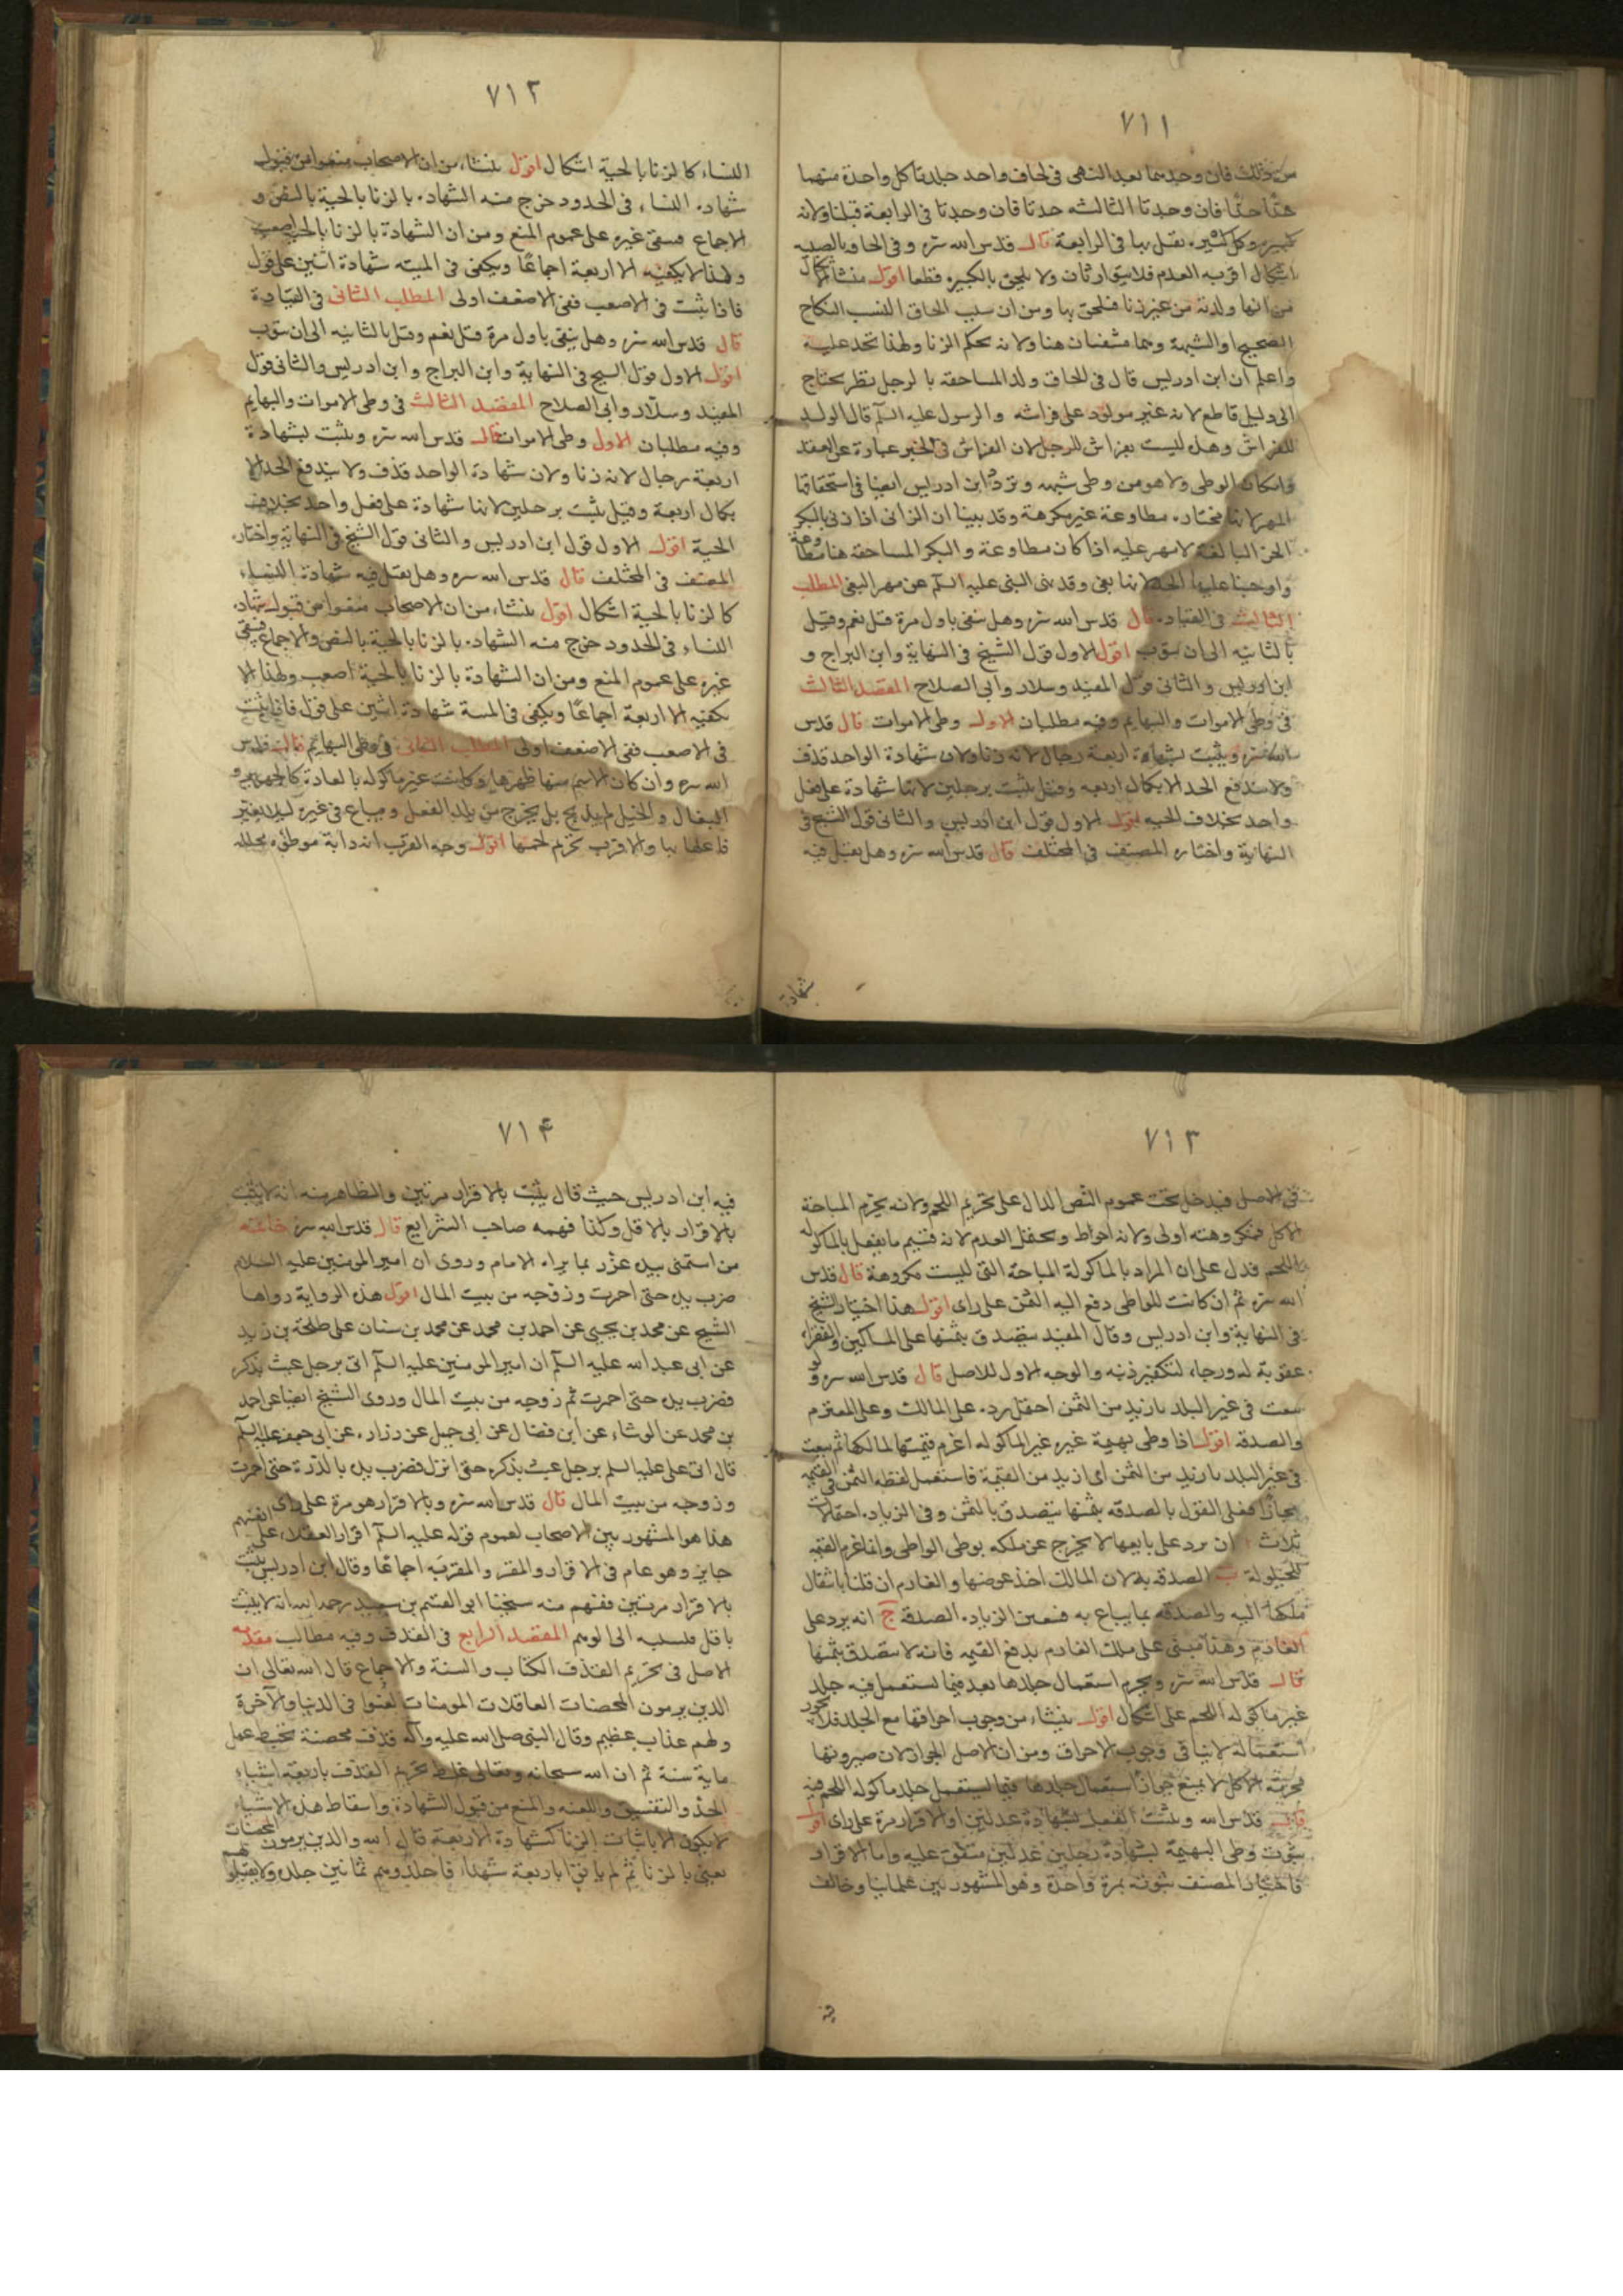 ٧١١
من ذلك فان وجدتا بعد النهى فى لحاف واحد جلدتا كل واحدة منهما
حدا حدا فان وجدتا الثالثه حدتا فان وجدتا فى الرابعة قتلتا ولانه
كبيره وكل كبيره يقتل بها فى الرابعة قال قدس الله سره وفى الحاق بالصبيه
اشكال اقربه العدم فلا يتوارثان ولا يلحق بالكبيره قطعا اقول منشا الاشكال
من انها ولدته من غير زنا فلحق بها ومن ان سبب الحاق النسب النكاح
الصحيح او الشبهة وهما منفيان هنا ولانه بحكم الزنا ولهذا تحد عليه
واعلم ان ابن ادريس قال فى الحاق ولد المساحقه بالرجل نظر يحتاج
الى دليل قاطع لانه غير مولود على فراشه والرسول عليه السلم قال الولد
للفراش وهذه ليست بفراش للرجل لان الفراش فى الخبر عبارة عن العقد
وامكان الوطى ولا هو من وطى شبهه وتردد ابن ادريس ايضا فى استحقاقها
المهر لانها مختاره مطاوعة غير مكرهة وقد بينا ان الزانى اذا زنى بالبكر
الحره البالغه لا مهر عليه اذا كان مطاوعة والبكر المساحقه هنا مطاوعة
واوجبنا عليها الحد لانها بغى وقد نهى النبى عليه السلم عن مهر البغى المطلب
الثالث فى القياده قال قدس الله سره وهل ينفى باول مرة قيل نعم وقيل
بالثانيه الى ان يتوب اقول الاول قول الشيخ فى النهاية وابن البراج و
ابن ادريس والثانى قول المفيد وسلار وابى الصلاح المقصد الثالث
فى وطى الاموات والبهايم وفيه مطلبان الاول وطى الاموات قال قدس
الله سره ويثبت بشهادة اربعة رجال لانه زنا ولان شهادة الواحد قذف
ولا يندفع الحد الا بكمال اربعه وقيل يثبت برجلين لانها شهادة على فعل
واحد بخلاف الحيه اقول الاول قول ابن ادريس والثانى قول الشيخ فى
النهاية واختاره المصنف فى المختلف قال قدس الله سره وهل يقبل فيه
شهادة
٧١٢
النساء كالزنا بالحية اشكال اقول ينشاء من ان الاصحاب منعوا من قبول
شهاده النساء فى الحدود خرج منه الشهاده بالزنا بالحية بالنص و
الاجماع فبقى غيره على عموم المنع ومن ان الشهادة بالزنا بالحية اصعب
ولهذا لا يكفيه الا اربعة اجماعًا ويكفى فى الميته شهادة اثنين على قول
فاذا يثبت فى الاصعب ففى الاضعف اولى المطلب الثانى فى القيادة
قال قدس الله سره وهل ينفى باول مرة قيل نعم وقيل بالثانيه الى ان يتوب
اقول الاول قول الشيخ فى النهاية وابن البراج وابن ادريس والثانى قول
المفيد وسلار وابى الصلاح المقصد الثالث فى وطى الاموات والبهايم
وفيه مطلبان الاول وطى الاموات قال قدس الله سره ويثبت بشهادة
اربعة رجال لانه زنا ولان شهادة الواحد قذف ولا يندفع الحد الا
بكمال اربعة وقيل يثبت برجلين لانها شهادة على فعل واحد بخلاف
الحية اقول الاول قول ابن ادريس والثانى قول الشيخ فى النهاية واختاره
المصنف فى المختلف قال قدس الله سره وهل يقبل فيه شهادة النساء
كالزنا بالحية اشكال اقول ينشاء من ان الاصحاب منعوا من قبول شهاده
النساء فى الحدود خرج منه الشهاده بالزنا بالحية بالنص والاجماع فبقى
غيره على عموم المنع ومن ان الشهادة بالزنا بالحية اصعب ولهذا لا
يكفيه الا اربعة اجماعًا ويكفى فى الميتة شهادة اثنين على قول فاذا يثبت
فى الاصعب ففى الاضعف اولى المطلب الثانى فى وطى البهايم قال قدس
الله سره وان كان الاسم منها ظهرها وكانت غير ماكوله بالعادة كالحمير و
البغال والخيل لم يذبح بل يخرج من بلد الفعل ويباع فى غيره ليلا يعير
فاعلها بها والاقرب تحريم لحمها اقول وجه القرب انه دابة موطؤه محلله
٧١٣
فى الاصل فيدخل تحت عموم النص الدال على تحريم اللحم ولانه يحرم المباحة
الاكل فمكروهته اولى ولانه احوط ويحتمل العدم لانه قسيم ما يفعل بالماكوله
اللحم فدل على ان المراد بالماكولة المباحة التى ليست مكروهة قال قدس
الله سره ثم ان كانت للواطى دفع اليه الثمن على راى اقول هذا اختيار الشيخ
فى النهاية وابن ادريس وقال المفيد يتصدق بثمنها على المساكين والفقراء
عقوبة له ورجاء لتكفير ذنبه والوجه الاول للاصل قال قدس الله سره ولو
بيعت فى غير البلد بازيد من الثمن احتمل رده على المالك وعلى المغترم
والصدقه اقول اذا وطى بهيمة غيره غير الماكوله اغرم قيمتها لمالكها ثم بيعت
فى غير البلد بازيد من الثمن اى ازيد من القيمة فاستعمل لفظه الثمن فى القيمه
مجازًا فعلى القول بالصدقه بثمنها يتصدق بالثمن وفى الزياده احتمالات
ثلاث ا ان يرد على بايعها لا يخرج عن ملكه بوطى الواطى وانما غرم القيمه
للحيلولة ب الصدقه به لان المالك اخذ عوضها والغارم ان قلنا بانتقال
ملكها اليه والصدقه بما يباع به فتعين الزياده الصدقة ج انه يرد على
الغارم وهذا مبنى على ملك الغارم بدفع القيمه فانه لا يتصدق بثمنها
قال قدس الله سره ويحرم استعمال جلدها بعد فيما يستعمل فيه جلد
غير ماكوله اللحم على اشكال اقول ينشاء من وجوب احراقها مع الجلد فلا يجوز
استعماله لانه ينافى وجوب الاحراق ومن ان الاصل الجواز لان صيرورتها
محرمة الاكل لا يمنع جواز استعمال جلدها فيما يستعمل جلد ماكوله اللحم فيه
قال قدس الله ويثبت الفعل بشهادة عدلين او الاقرار مرة على راى اقول
ثبوت وطى البهيمة بشهادة رجلين عدلين متفق عليه واما الاقرار
فاختيار المصنف ثبوته بمرة واحدة وهو المشهور بين علمائنا وخالف
فيه
٧١۴
فيه ابن ادريس حيث قال يثبت بالاقرار مرتين والظاهر منه انه لا يثبت
بالاقرار بالاقل وكذا فهمه صاحب الشرايع قال قدس الله سره خاتمه
من استمنى بيده عزر بما يراه الامام وروى ان امير المومنين عليه السلام
ضرب يده حتى احمرت وزوجه من بيت المال اقول هذه الرواية رواها
الشيخ عن محمد بن يحيى عن احمد بن محمد عن محمد بن سنان على طلحة بن زيد
عن ابى عبد الله عليه السلم ان امير المومنين عليه السلم اتى برجل عبث بذكره
فضرب يده حتى احمرت ثم زوجه من بيت المال وروى الشيخ ايضا عن احمد
بن محمد عن الوشاء عن ابن فضال عن ابى جميل عن زراره عن ابى جعفر عليه السلم
قال اتى على عليه السلم برجل عبث بذكره حتى انزل فضرب يده بالدّرة حتى احمرت
وزوجه من بيت المال قال قدس الله سره وبالاقرار هو مرة على راى اقول
هذا هو المشهور بين الاصحاب لعموم قوله عليه السلم اقرار العقلاء على انفسهم
جايز وهو عام فى الاقرار والمقر والمقر به اجماعًا وقال ابن ادريس يثبت
بالاقرار مرتين ففهم منه شيخنا ابو القسم بن سعيد رحمه الله انه لا يثبت
باقل فنسبه الى الوهم المقصد الرابع فى القذف وفيه مطالب مقدمه
الاصل فى تحريم القذف الكتاب والسنة والاجماع قال الله تعالى ان
الذين يرمون المحصنات الغافلات المومنات لعنوا فى الدنيا والآخرة
ولهم عذاب عظيم وقال النبى صلى الله عليه وآله قذف محصنة تحبط عمل
ماية سنة ثم ان الله سبحانه وتعالى غلظ تحريم القذف باربعة اشياء
الحد والتفسيق واللعنه والمنع من قبول الشهادة واسقاط هذه الاشياء
لا يكون الا باثبات الزنا كشهادة الاربعة قال الله والذين يرمون المحصنات
يعنى بالزنا ثم لم ياتوا باربعة شهداء فاجلدوهم ثمانين جلدة ولا تقبلوا لهم